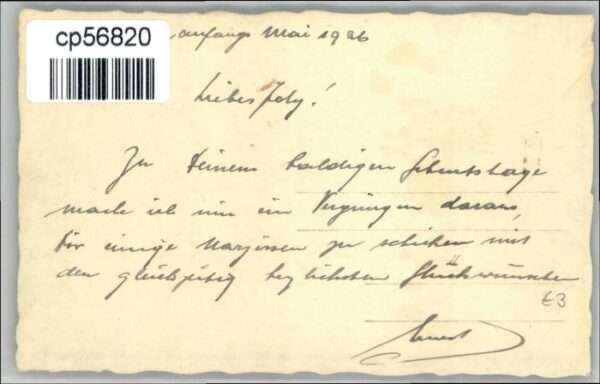 cp56820
anfangs Mai 1926
Liebes Joly!
Zu Deinem baldigen Geburtstage
mache ich mir ein Vergnügen daraus,
Dir einige Narzissen zu schicken mit
den gleichzeitig herzlichsten Glückwünschen
£3